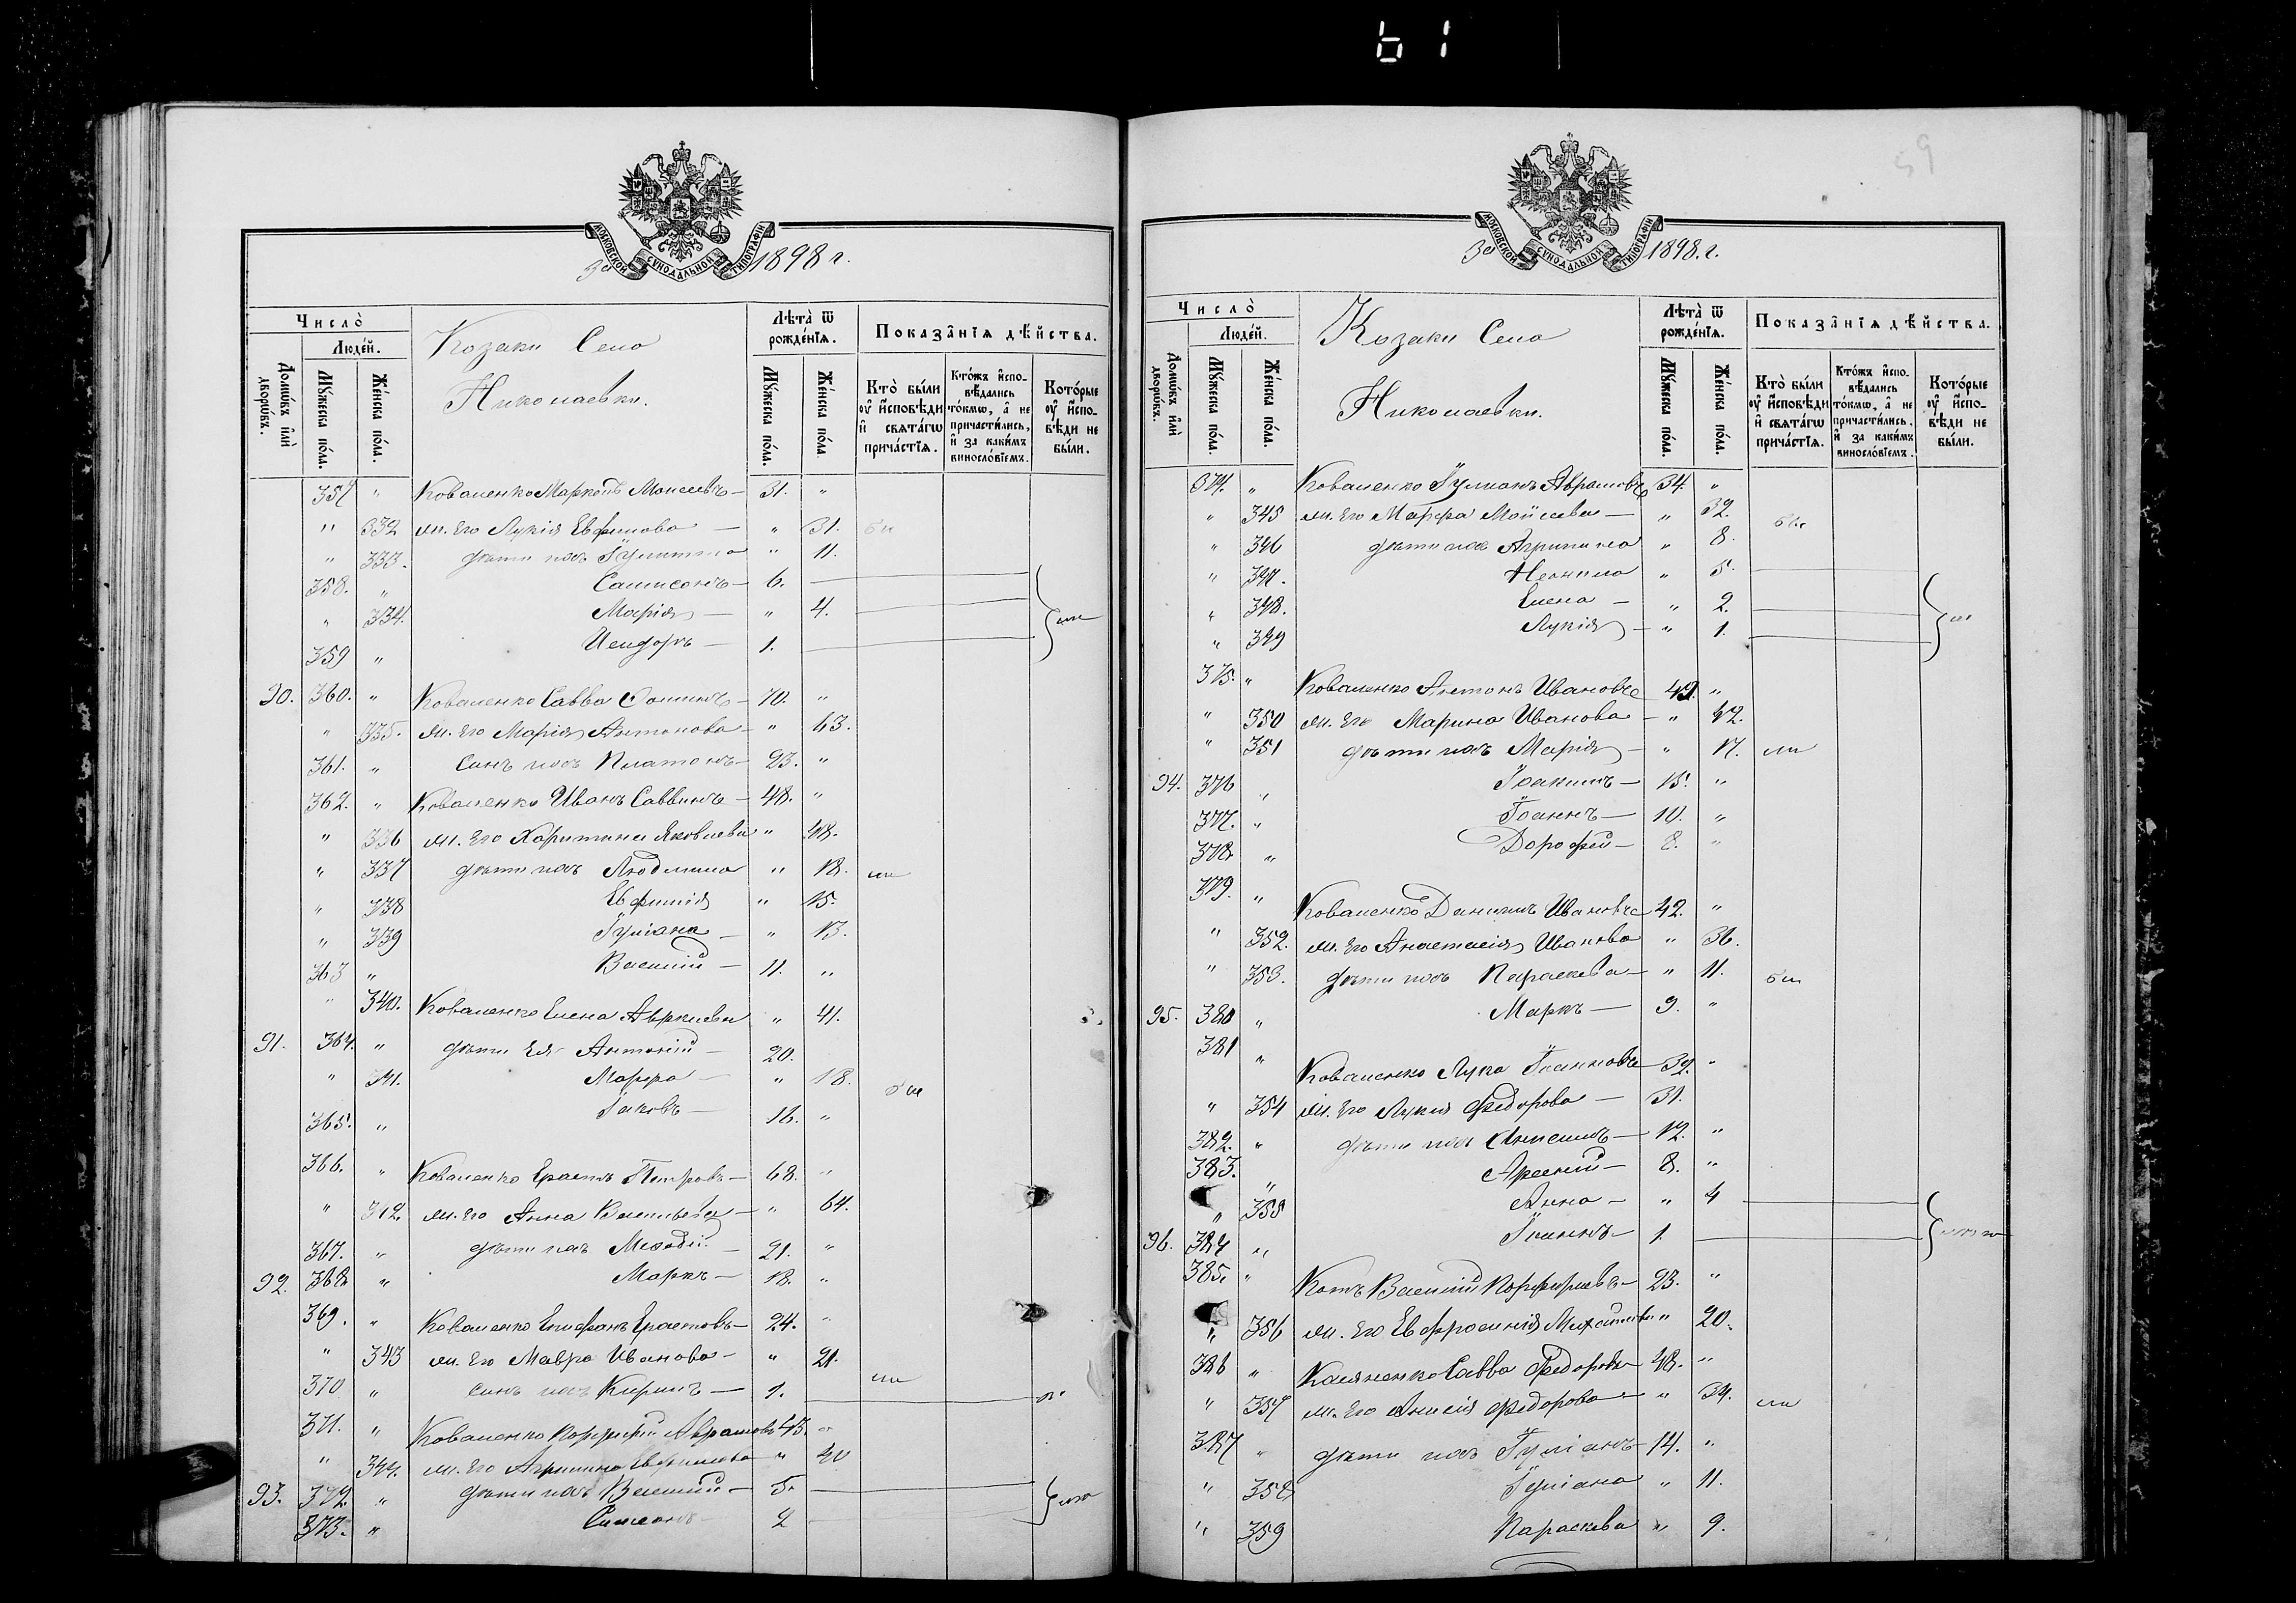 61
59
МОСКОВСКОЙ СѴНОДАЛЬНОЙ ТИПОГРАФІИ
За 1898 г.
Число̀
Людéй.
Домѡ́въ и҆лѝ дворѡ́въ.
Мꙋ́жеска по́ла.
Же́нска по́ла.
Козаки Села
Николаевки.
Лѣта̀ ѿ рождéнїѧ.
Мꙋ́жеска по́ла.
Же́нска по́ла.
Показа̑нїѧ дѣ́йства.
Кто̀ бы́ли ᲂу҆ и҆сповѣ́ди и҆ свѧта́гѡ прича́стїѧ.
Кто́жъ и҆сповѣ́дались то́кмѡ, а҆ не причасти́лись, и҆ за каки́мъ винослóвїемъ.
Кото́рые ᲂу҆ и҆сповѣ́ди не бы́ли.
357 " Коваленко Маркелъ Моисеевъ — 31. "
" 332 ж. его Лукія Евфимова — " 31.
" 333. дѣти ихъ Іулитта " 11.
358. " Сампсонъ — 6.
" 334. Марія — " 4.
359 " Исидоръ — 1.
90. 360. " Коваленко Савва — 70. "
" 335. ж. его Марія Антонова — " 63.
361. " сынъ ихъ Платонъ — 23. "
362. " Коваленко Иванъ Саввинъ — 48. "
" 336 ж. его Харитина Яковлева " 48.
" 337 дѣти ихъ Людмила " 18.
" 338 Евфимія " 15.
" 339 Іуліана — " 13.
363 " Василій — 11. "
" 340. Коваленко Елена " 41.
91. 364. " дѣти ея Антоній — 20.
" 341. Марфа — " 18.
365. " Іаковъ — 16. "
366. " Коваленко Ерастъ Петровъ — 68. "
" 342. ж. его Анна Васильева — " 64.
367. " дѣти ихъ Меѳодій — 21. "
92. 368. " Маркъ — 18. "
369. " Коваленко Епифанъ Ерастовъ — 24. "
" 343 ж. его Мавра Иванова — " 21.
370 " сынъ ихъ Кириллъ — 1.
371. " Коваленко Порфирій Аврамовъ 43. "
" 344. ж. его Агрипина Евфимова " 40
93. 372. " дѣти ихъ Василій — 5.
373. " Симеонъ 2
МОСКОВСКОЙ СѴНОДАЛЬНОЙ ТИПОГРАФІИ
За 1898. г.
Число̀
Людéй.
Домѡ́въ и҆лѝ дворѡ́въ.
Мꙋ́жеска по́ла.
Же́нска по́ла.
Козаки Села
Николаевки.
Лѣта̀ ѿ рождéнїѧ.
Мꙋ́жеска по́ла.
Же́нска по́ла.
Показа̑нїѧ дѣ́йства.
Кто̀ бы́ли ᲂу҆ и҆сповѣ́ди и҆ свѧта́гѡ прича́стїѧ.
Кто́жъ и҆сповѣ́дались то́кмѡ, а҆ не причасти́лись, и҆ за каки́мъ винослóвїемъ.
Кото́рые ᲂу҆ и҆сповѣ́ди не бы́ли.
374. " Коваленко Іуліанъ Аврамовъ 34. "
" 345 ж. его Марфа Моисеева — " 32.
" 346 дѣти ихъ Агрипина " 8.
" 347. Неонила " 5.
" 348. Елена — " 2.
" 349 Лукія — " 1.
375. " Коваленко Антонъ Ивановъ 49. "
" 350 ж. его Марина Иванова — " 42.
" 351 дѣти ихъ Марія — " 17.
94. 376 " Іоакимъ — 15. "
377. " Іоаннъ — 10. "
378 " Дорофей — 8. "
379. " Коваленко Даніилъ Ивановъ 42. "
" 352. ж. его Анастасія Иванова " 36.
" 353. дѣти ихъ Параскева — " 11.
95. 380 " Маркъ — 9. "
381 " Коваленко Лука Іоанновъ — 32. "
" 354 ж. его Лукія Федорова — 31.
382. " дѣти ихъ Анисимъ — 12. "
383. " Арсеній — 8. "
" 355 Анна — " 4
96. 384 " Іоаннъ — 1.
385. " Котъ Василій Порфиріевъ — 23. "
" 356 ж. его Евфросинія " 20.
386 " Касяненко Савва Федоровъ 48. "
" 357 ж. его Анисія Федорова " 39.
387 " дѣти ихъ Іуліанъ — 14. "
" 358 Іуліана " 11.
" 359 Параскева " 9.